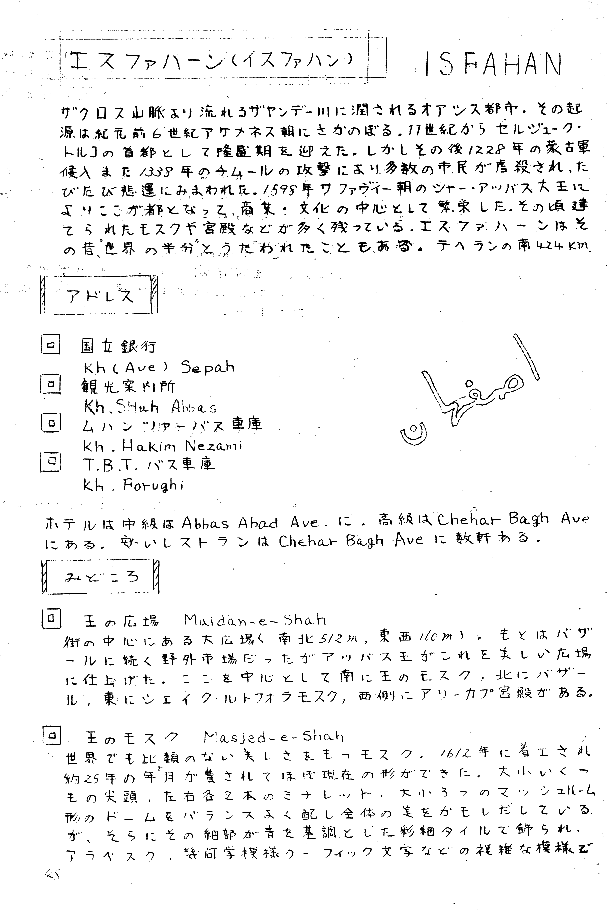 エスファハーン(イスファハン) ISFAHAN
ザクロス山脈より流れるザヤンデー川に潤されるオアシス都市。その起
源は紀元前6世紀アケメネス朝にさかのぼる。11世紀からセルジューク・
トルコの首都として隆盛期を迎えた。しかしその後1228年の蒙古軍
侵入また1338年のチムールの攻撃により多数の市民が虐殺され、た
びたび悲運にみまわれた。1598年サファヴィー朝のシャー・アッバス大王に
よりここが都となって、商業・文化の中心として繁栄した。その頃建
てられたモスクや宮殿などが多く残っている。エスファハーンはそ
の昔"世界の半分"とうたわれたこともある。テヘランの南424km
アドレス
国立銀行
Kh(Ave) Sepah
観光案内所
Kh. Shah Abbas
ムハンツァーバス車庫
Kh. Hakim Nezami
T.B.T.バス車庫
Kh. Forughi
اصفهان
ホテルは中級はAbbas Abad Ave.に。高級はChehar Bagh Ave
にある。安いレストランはChehar Bagh Aveに数軒ある。
みどころ
王の広場 Maidan-e-Shah
街の中心にある大広場(南北512m,東西 m)。もとはバザ
ールに続く野外市場だったがアッバス王がこれを美しい広場
に仕上げた。ここを中心として南に王のモスク、北にバザー
ル、東にシェイク・ルトフォラモスク、西側にアリーカプ宮殿がある。
王のモスク Masjed-e-Shah
世界でも比類のない美しさをもつモスク。1612年に着工され
約25年の年月が費されてほぼ現在の形ができた。大小いくつ
もの尖頭、左右各2本のミナレット、大小3つのマッシュルーム
形のドームをバランスよく配し全体の美をかもしだしている
が、さらにその細部が青を基調とした彩細タイルで飾られ、
アラベスク、幾何学模様クーフィック文字などの複雑な模様で